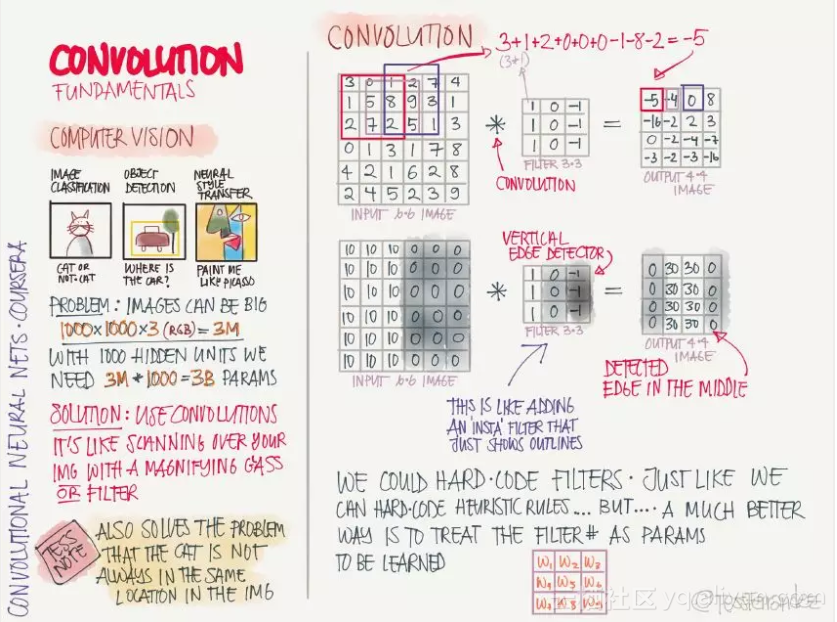 CONVOLUTIONAL NEURAL NETS · COURSERA
CONVOLUTION
FUNDAMENTALS
COMPUTER VISION
IMAGE CLASSIFICATION
OBJECT DETECTION
NEURAL STYLE TRANSFER
CAT OR NOT-CAT
WHERE IS THE CAR?
PAINT ME LIKE PICASSO
PROBLEM: IMAGES CAN BE BIG
1000×1000×3 (RGB) = 3M
WITH 1000 HIDDEN UNITS WE
NEED 3M*1000=3B PARAMS
SOLUTION: USE CONVOLUTIONS
IT'S LIKE SCANNING OVER YOUR
IMG WITH A MAGNIFYING GASS
OR FILTER
TESS NOTE
ALSO SOLVES THE PROBLEM
THAT THE CAT IS NOT
ALWAYS IN THE SAME
LOCATION IN THE IMG
CONVOLUTION
3+1+2+0+0+0-1-8-2=-5
(3*1)
3 0 1 2 7 4
1 5 8 9 3 1
2 7 2 5 1 3
0 1 3 1 7 8
4 2 1 6 2 8
2 4 5 2 3 9
INPUT 6·6 IMAGE
*
CONVOLUTION
1 0 -1
1 0 -1
1 0 -1
FILTER 3×3
=
-5 -4 0 8
-16 -2 2 3
0 -2 -4 -7
-3 -2 -3 -16
OUTPUT 4·4
IMAGE
10 10 10 0 0 0
10 10 10 0 0 0
10 10 10 0 0 0
10 10 10 0 0 0
10 10 10 0 0 0
10 10 10 0 0 0
INPUT 6·6 IMAGE
*
VERTICAL
EDGE DETECTOR
1 0 -1
1 0 -1
1 0 -1
FILTER 3×3
=
0 30 30 0
0 30 30 0
0 30 30 0
0 30 30 0
OUTPUT 4·4
IMAGE
THIS IS LIKE ADDING
AN 'INSTA' FILTER THAT
JUST SHOWS OUTLINES
DETECTED
EDGE IN THE MIDDLE
WE COULD HARD·CODE FILTERS · JUST LIKE WE
CAN HARD·CODE HEURISTIC RULES... BUT.... A MUCH BETTER
WAY IS TO TREAT THE FILTER# AS PARAMS
TO BE LEARNED
W₁ W₂ W₃
W₄ W₅ W₆
W₇ W₈ W₉